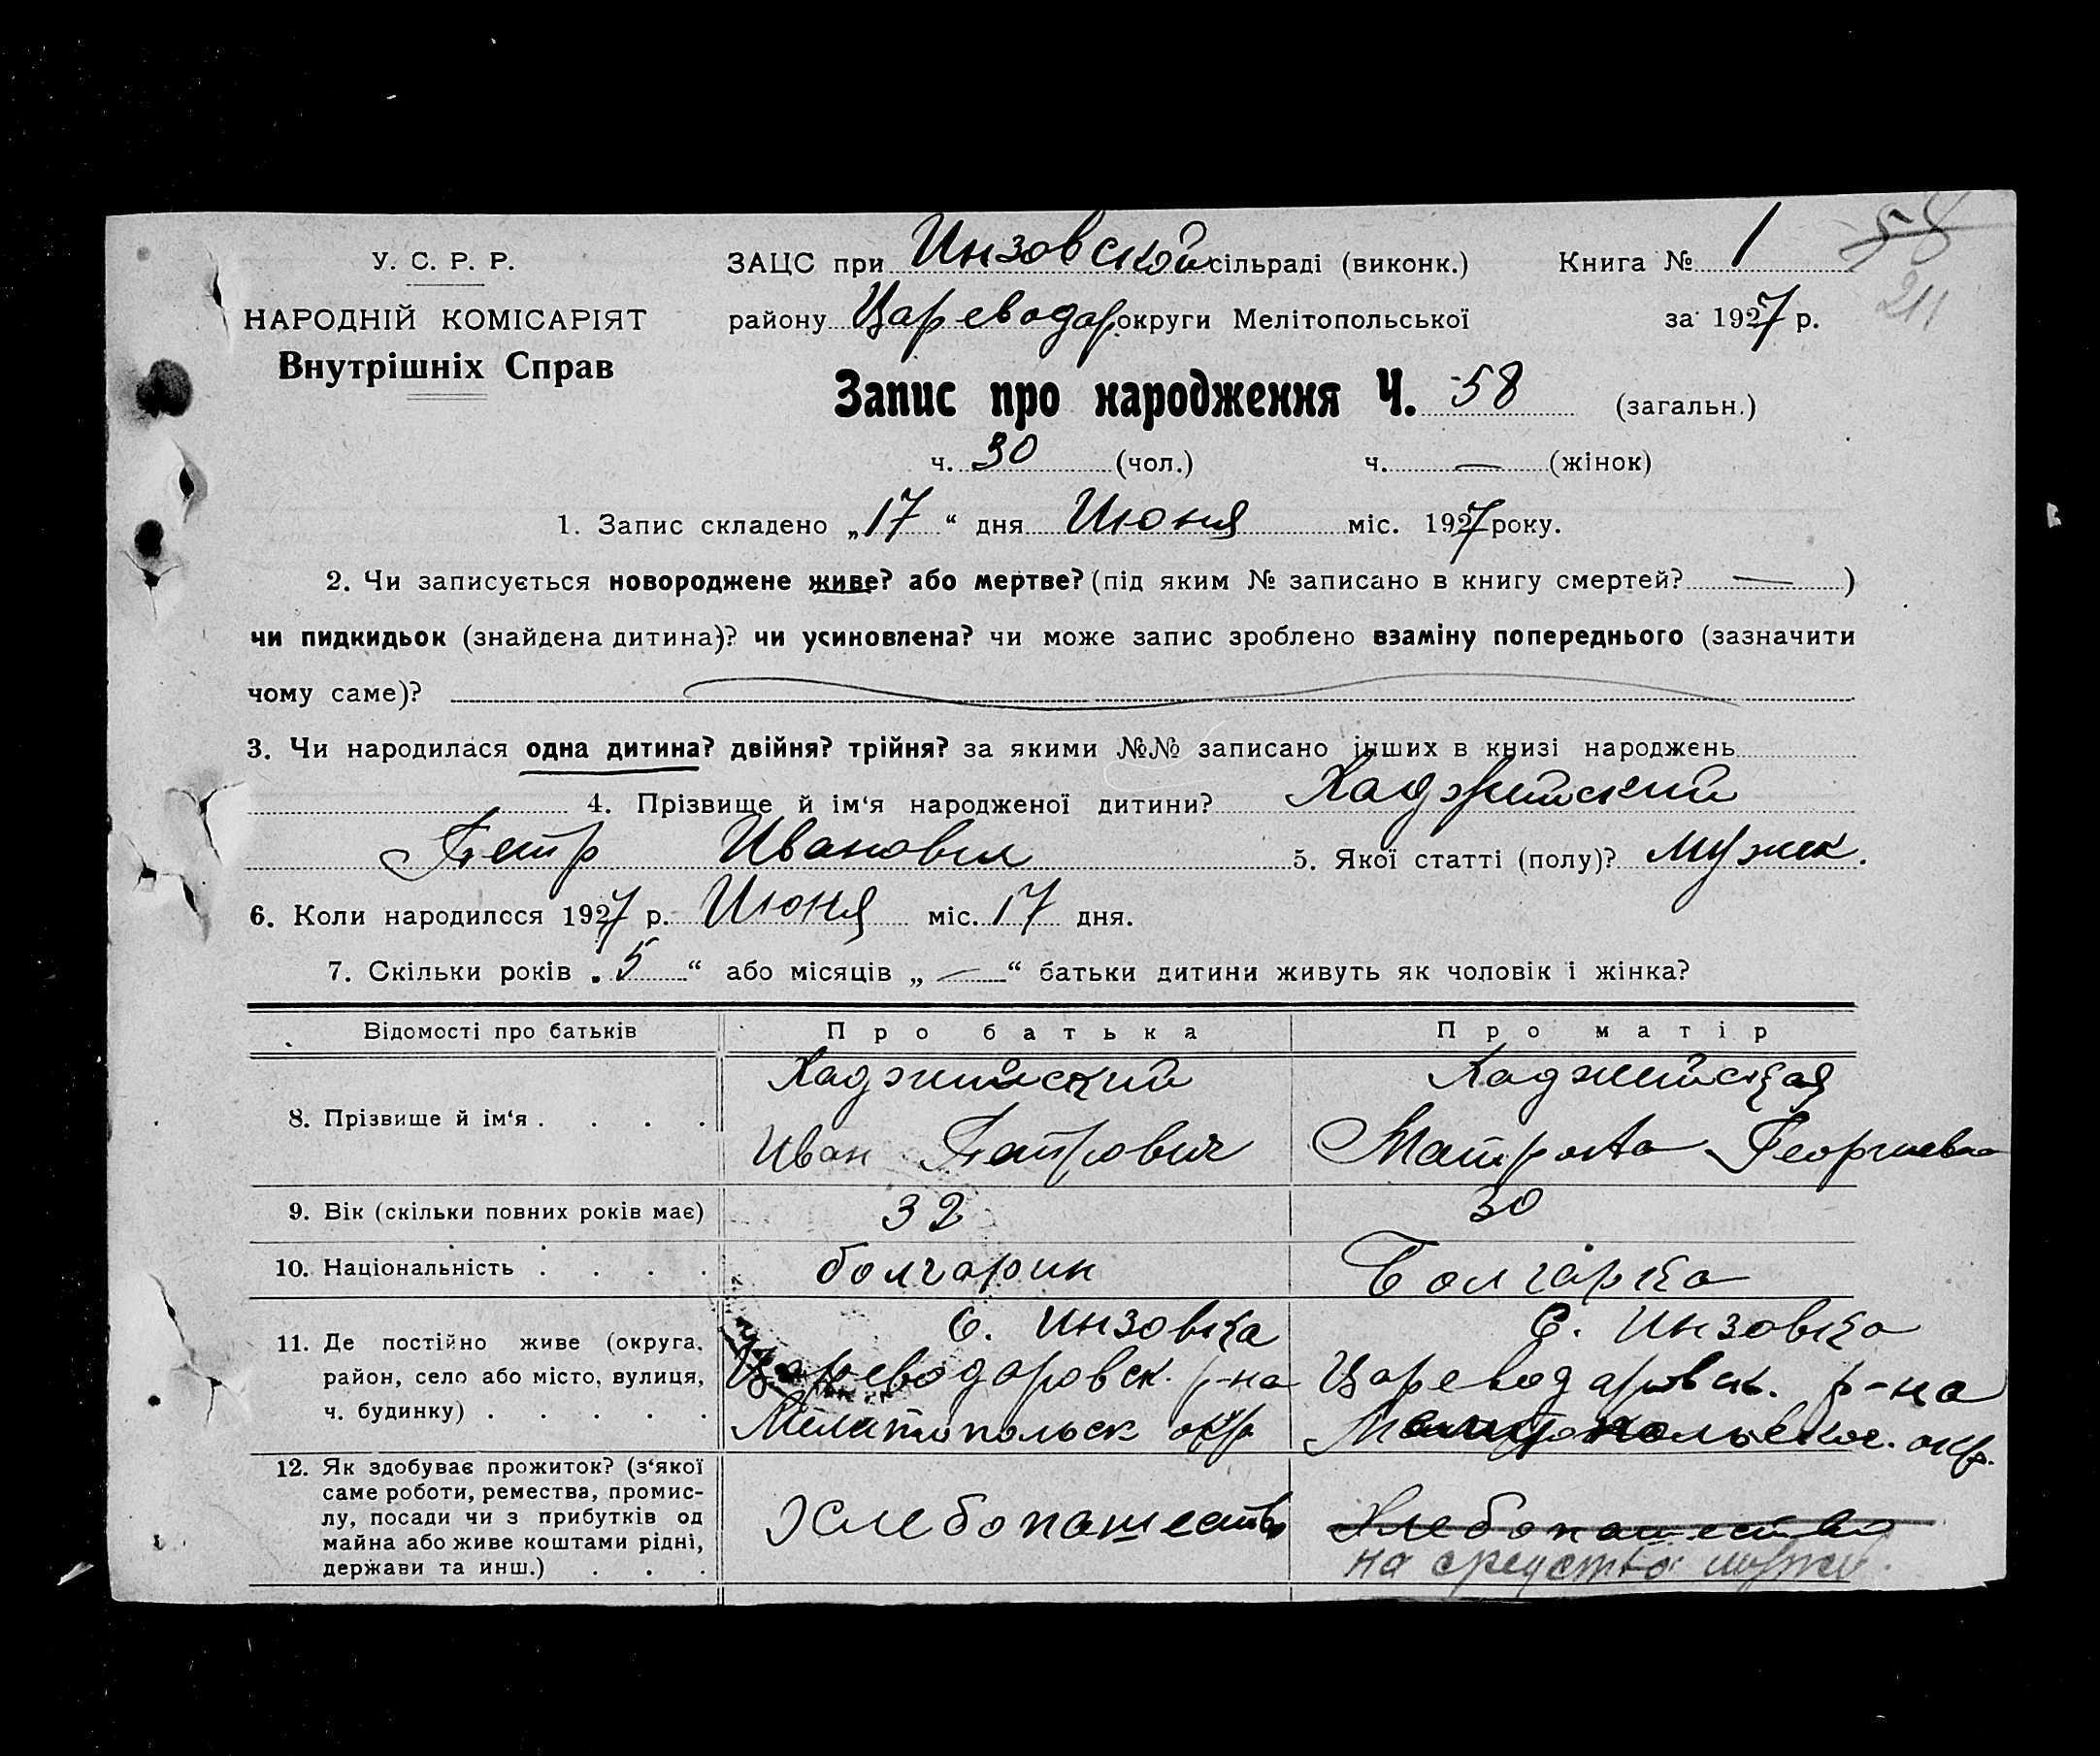 У. С. Р. Р.
НАРОДНІЙ КОМІСАРІЯТ
Внутрішніх Справ
ЗАЦС при Инзовской сільраді (виконк.) Книга № 1
58
району Цареводар округи Мелітопольської за 1927 р.
211
Запис про народження Ч. 58 (загальн.)
ч. 30 (чол.) ч. — (жінок)
1. Запис складено „17“ дня Июня міс. 1927 року.
2. Чи записується новороджене живе? або мертве? (під яким № записано в книгу смертей? — )
чи пидкидьок (знайдена дитина)? чи усиновлена? чи може запис зроблено взаміну попереднього (зазначити
чому саме)?
3. Чи народилася одна дитина? двійня? трійня? за якими №№ записано інших в книзі народжень
4. Прізвище й ім‘я народженої дитини? Хаджийский
Петр Иванович 5. Якої статті (полу)? мужск.
6. Коли народилося 1927 р. Июня міс. 17 дня.
7. Скільки років „5“ або місяців „—“ батьки дитини живуть як чоловік і жінка?
Відомості про батьків Про батька Про матір
8. Прізвище й ім‘я . . . .
Хаджийский
Иван Петрович
Хаджийская
Матрона Георгиевна
9. Вік (скільки повних років має) 32 30
10. Національність . . . . болгарин Болгарка
11. Де постійно живе (округа,
район, село або місто, вулиця,
ч. будинку) . . . . .
с. Инзовка
Цареводаровск. р-на
Мелитопольск окр
С. Инзовка
Цареводаровск. р-на
Мелитопольской. окр.
12. Як здобуває прожиток? (з‘якої
саме роботи, ремества, промис-
лу, посади чи з прибутків од
майна або живе коштами рідні,
держави та инш.) . . .
Хлебопашество
Хлебопашество
на средства мужа.